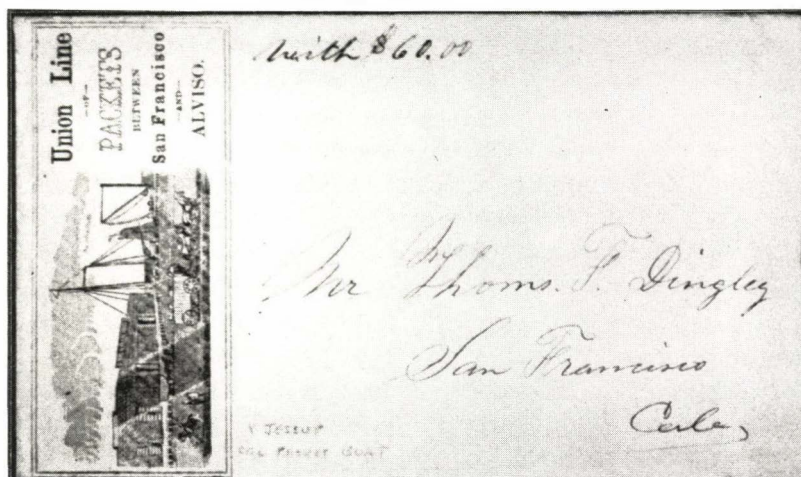 Union Line
—OF—
PACKETS
BETWEEN
San Francisco
—AND—
ALVISO.
with $60.00
Mr Thoms. F. Dingley
San Francisco
Cala,
JESSUP
PACKET BOAT